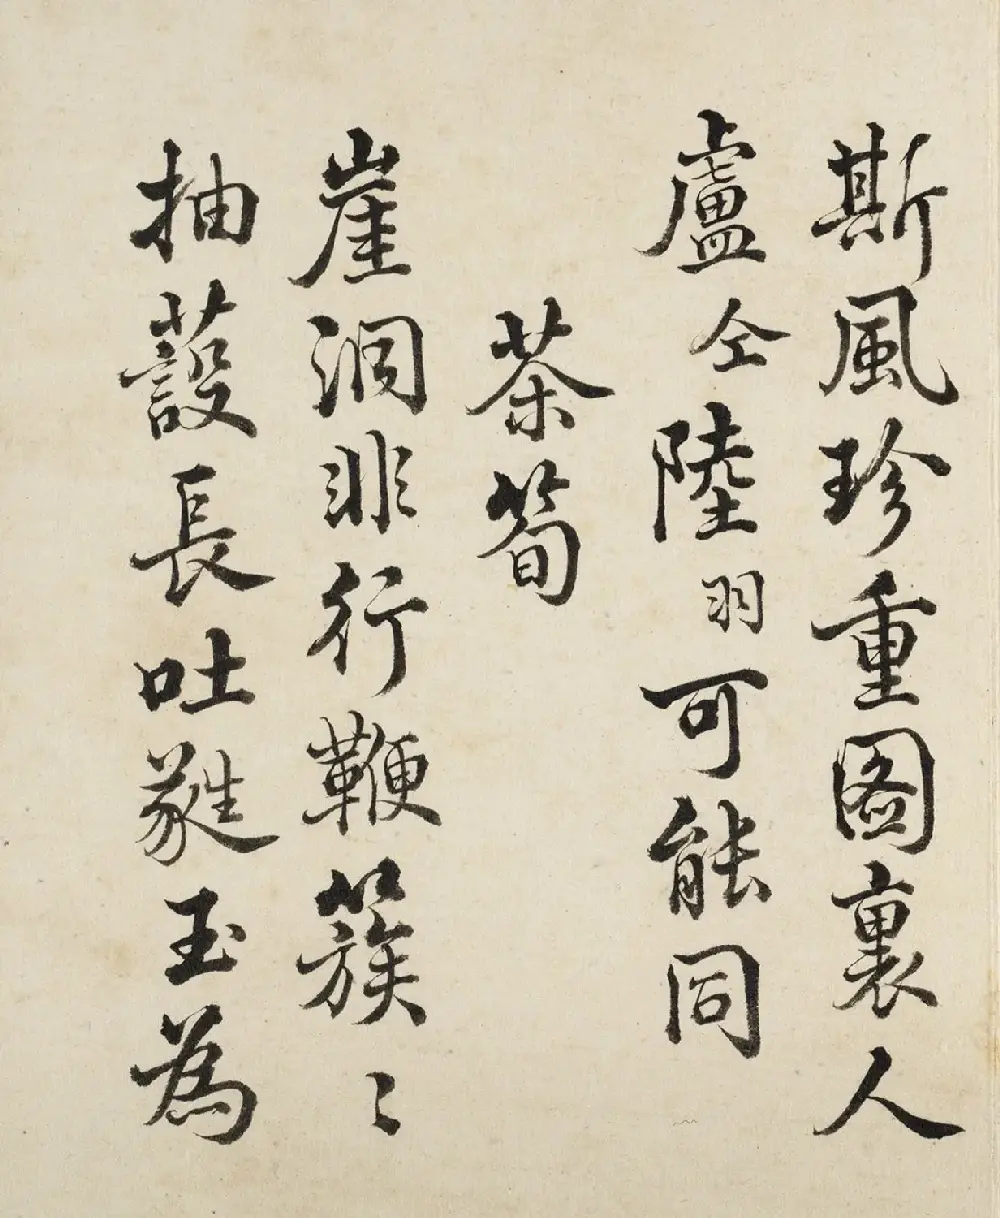 斯風珍重圖裏人
盧仝陸羽可能同
茶筍
崖洞非行鞭簇〻
抽䕶長吐蕤玉為